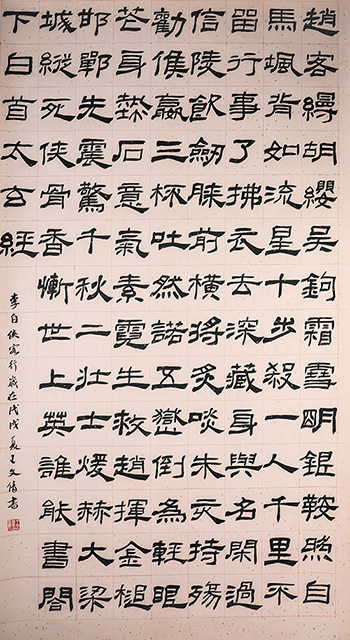 趙客縵胡纓吳鉤霜雪明銀鞍照白
馬颯沓如流星十步殺一人千里不
留行事了拂衣去深藏身與名閑過
信陵飲劒膝前橫將炙啖朱亥持殤
勸侯嬴三杯吐然諾五嶽倒為輕眼
身熱意氣素霓生救趙揮金槌
邯鄲先震驚千秋二壯士煊赫大梁
城縱死俠骨香慚世上英誰能書閣
下白首太玄經
李白俠客行歲在戊戌夏王文書